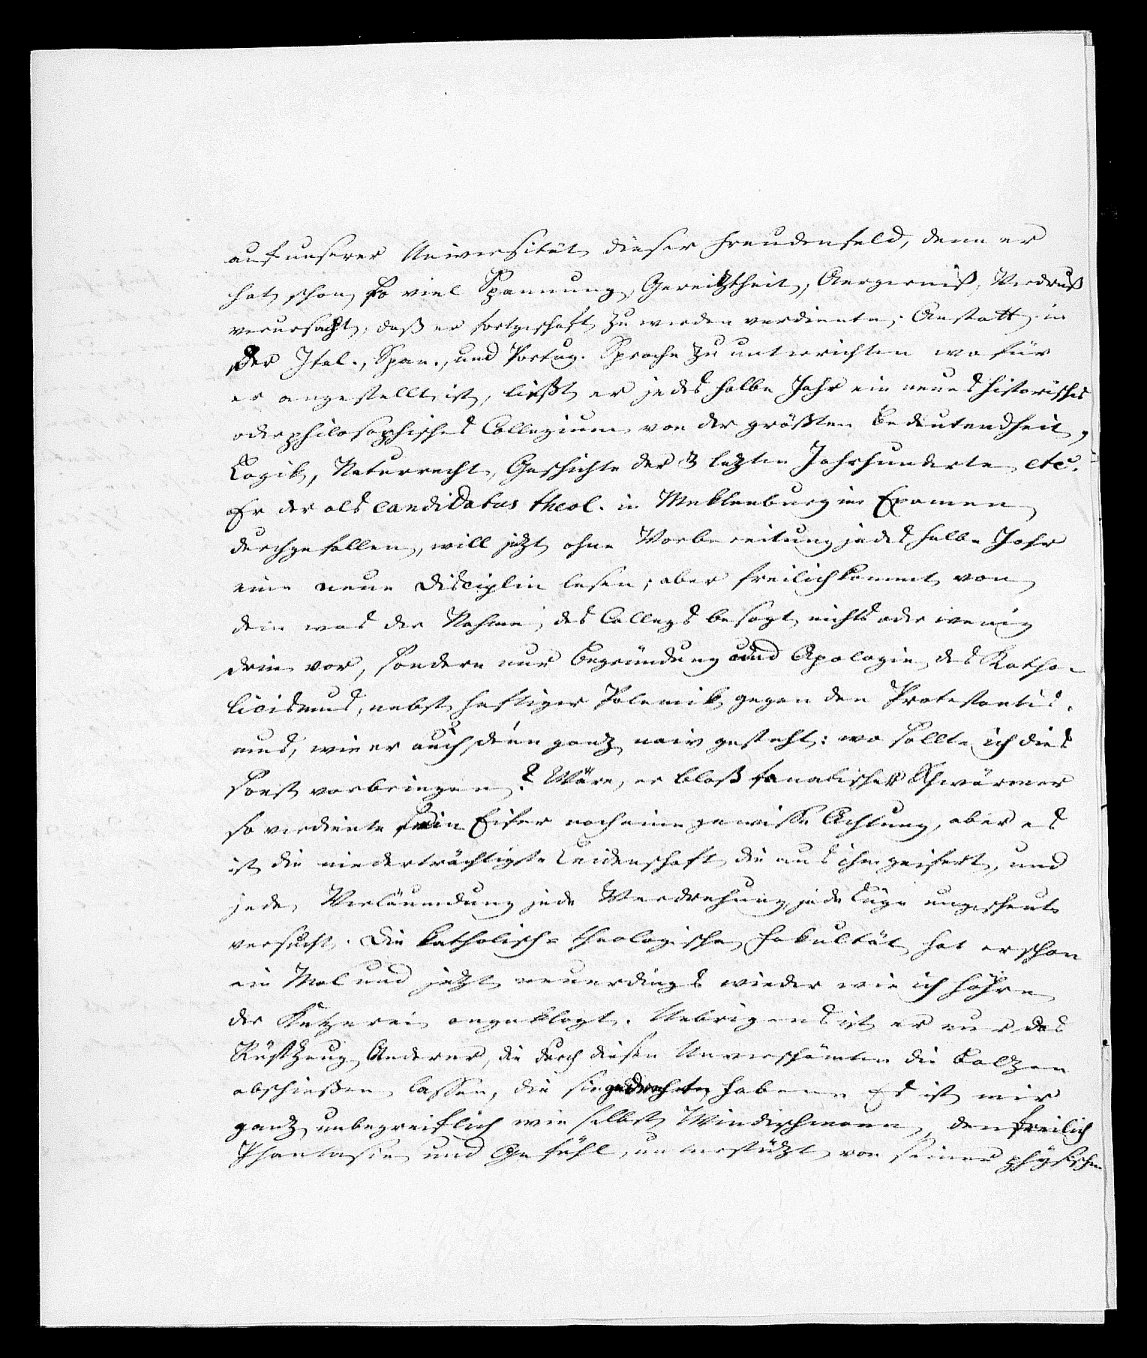 auf unserer Universität dieser Freudenfeld, denn er
hat schon so viel Spannung, Gereitztheit, Aergerniß, Verdruß
verursacht, daß er fortgeschaft zu werden verdiente; Anstatt in
der Ital., Span., und Portug. Sprache zu unterrichten wo für
er angestellt ist, ließt er jedes halbe Jahr ein neues historisches
oder philosophisches Collegium von der größten Bedeutendheit,
Logik, Naturrecht, Geschichte der 3 lezten Jahrhunderte etc.
Er der als candidatus theol. in Meklenburg im Examen
durchgefallen, will jetzt ohne Vorbereitung jedes halbe Jahr
eine neue Disciplin lesen; aber freilich kommt von
dem was der Nahme des Collegs besagt nichts oder wenig
drin vor, sondern nur Begründung und Apologie des Katho-
licismus, nebst heftiger Polemik gegen den Protestantis-
mus, wie er auch denn ganz naiv gesteht: wo sollte ich dies
sonst vorbringen? Wäre er bloß fanatischer Schwärmer
so verdiente sein Eifer noch eine gewisse Achtung, aber es
ist die niederträchtigste Leidenschaft die aus ihm geifert, und
jede Verläumdung jede Verdrehung jede Lüge ungescheut
versucht. Die katholisch theologische Fakultät hat er schon
ein Mal und jetzt neuerdings wieder wie ich höhre
der Ketzerei angeklagt. Uebrigens ist er nur das
Rüstzeug Anderer, die durch diesen Unverschämten die Bolzen
abschießen lassen, die sie gedrehet haben. Es ist mir
ganz unbegreiflich wie selbst Windischmann, den freilich
Phantasie und Gefühl, unterstützt von seiner physischen